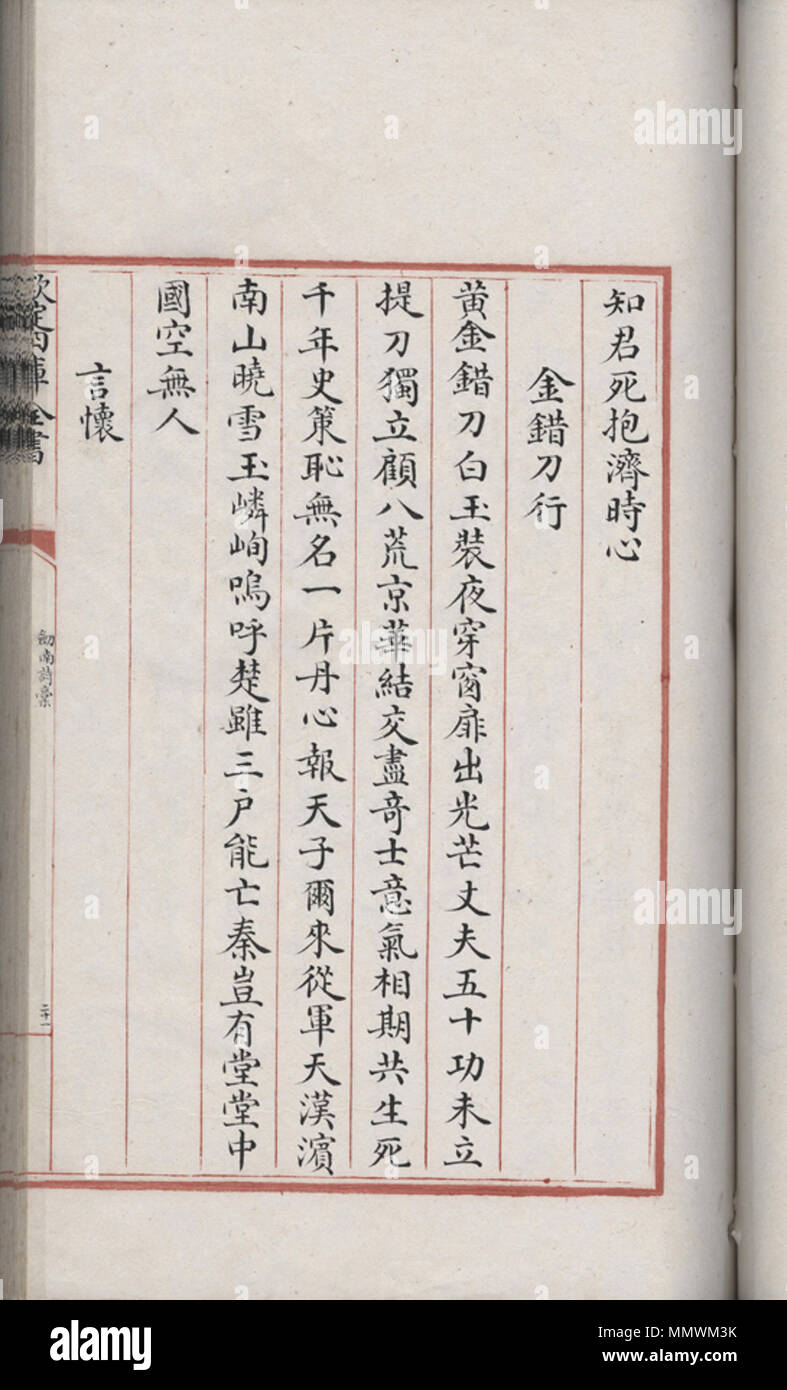 知君死抱濟時心
金錯刀行
黄金錯刀白玉裝夜穿窗扉出光芒丈夫五十功未立
提刀獨立顧八荒京華結交盡竒士意氣相期共生死
千年史策恥無名一片丹心報天子爾來從軍天漢濵
南山曉雪玉嶙峋嗚呼楚雖三户能亡秦豈有堂堂中
國空無人
言懷
欽定四庫全書
劒南詩槀
二十一
alamy
alamy
alamy
a alamy
Image ID: MMWM3K
www.alamy.com